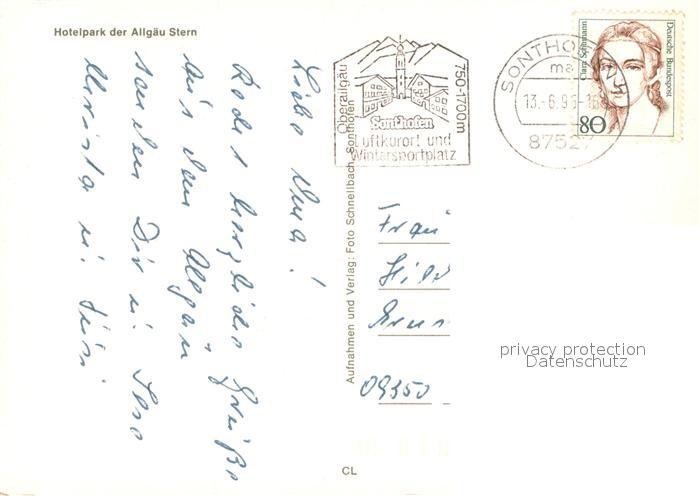 Hotelpark der Allgäu Stern
Liebe
herzliche Grüße
aus dem Allgäu
senden Dir u.
u.
Aufnahmen und Verlag: Foto Schnellbach, Sonthofen
Oberallgäu
750-1700m
Sonthofen
Luftkurort und
Wintersportplatz
SONTHOFEN
ma
13.-6.95-18
87527
Clara Schumann
Deutsche Bundespost
80
Frau
Hild
09350
privacy protection
Datenschutz
CL